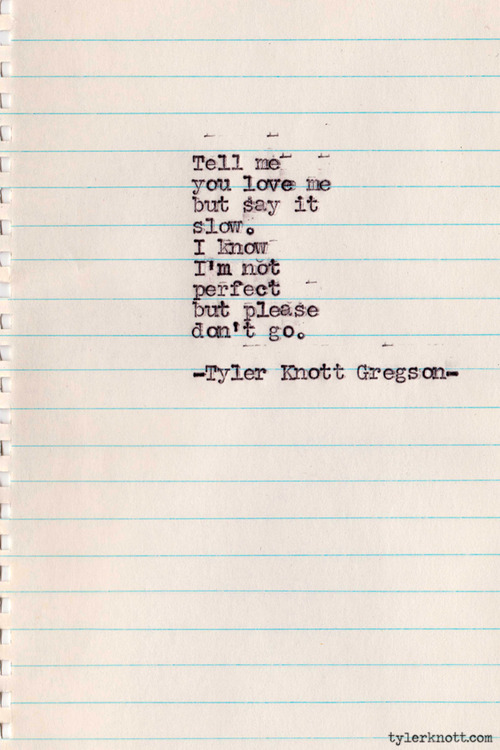 Tell me
you love me
but say it
slow.
I know
I'm not
perfect
but please
don't go.
-Tyler Knott Gregson-
tylerknott.com